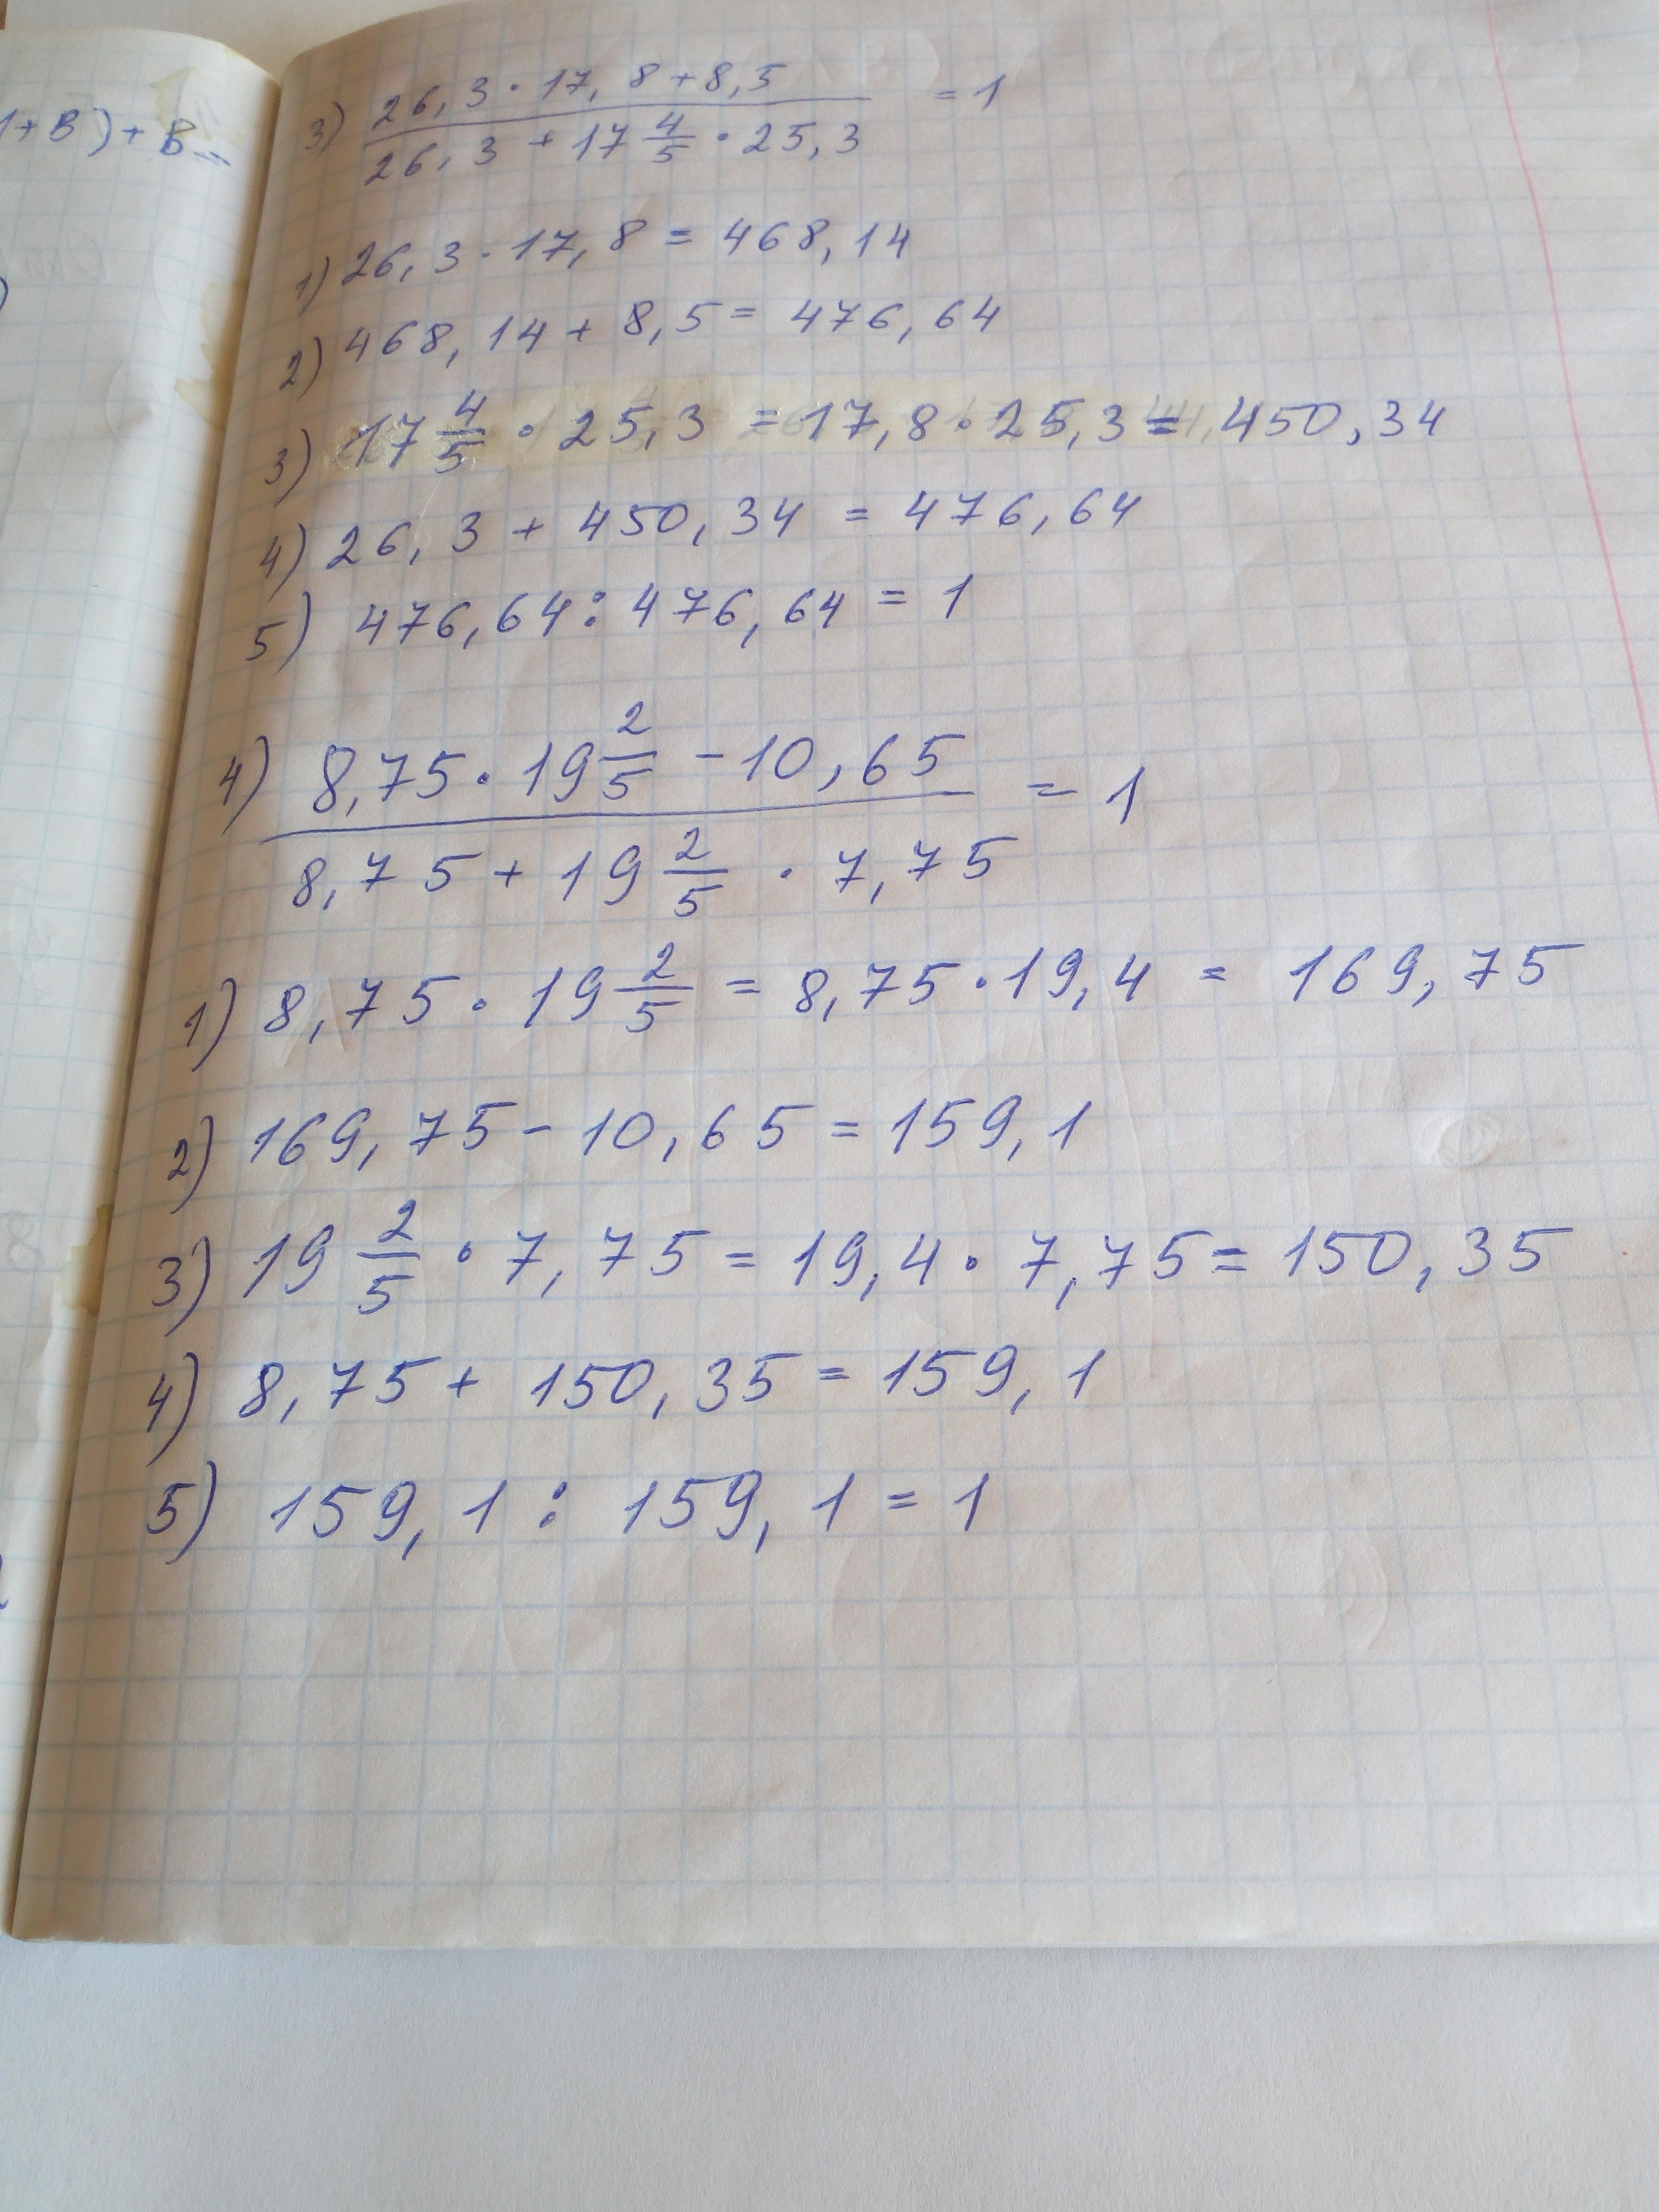 1+B)+B=
3) (26,3 · 17,8 + 8,5)/(26,3 + 17 4/5 · 25,3) = 1
1) 26,3 · 17,8 = 468,14
2) 468,14 + 8,5 = 476,64
3) 17 4/5 · 25,3 = 17,8 · 25,3 = 450,34
4) 26,3 + 450,34 = 476,64
5) 476,64 : 476,64 = 1
4) (8,75 · 19 2/5 - 10,65)/(8,75 + 19 2/5 · 7,75) = 1
1) 8,75 · 19 2/5 = 8,75 · 19,4 = 169,75
2) 169,75 - 10,65 = 159,1
3) 19 2/5 · 7,75 = 19,4 · 7,75 = 150,35
4) 8,75 + 150,35 = 159,1
5) 159,1 : 159,1 = 1